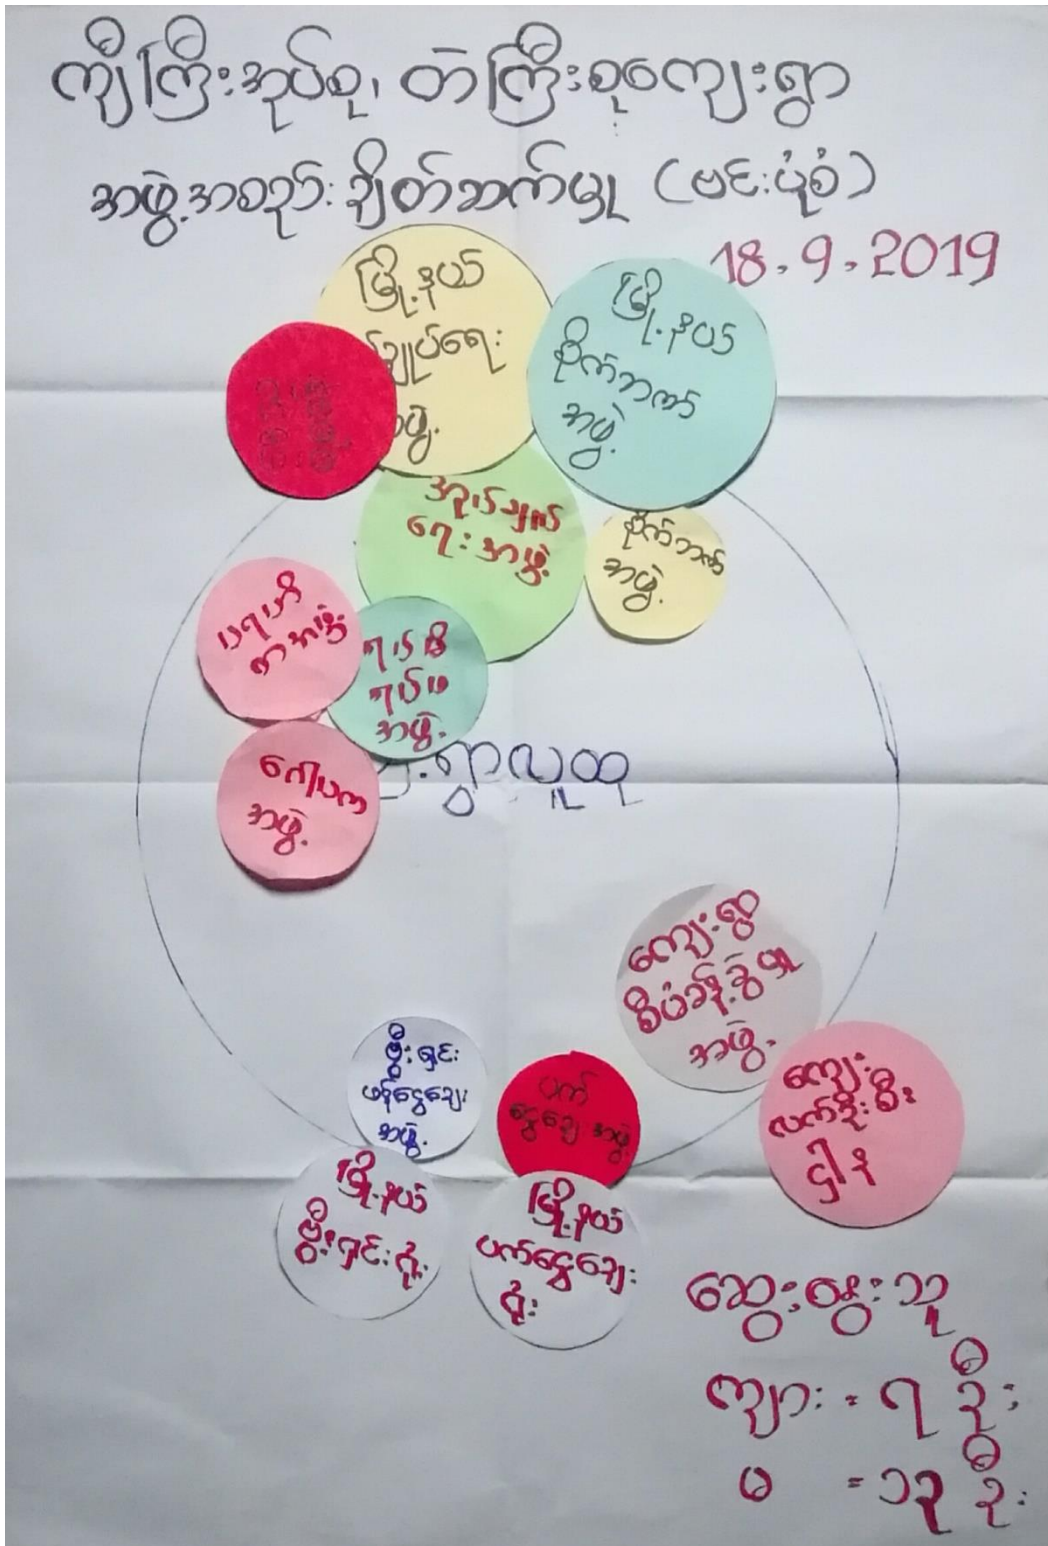 ကျီကြီးအုပ်စု၊ တဲကြီးစုကျေးရွာ
အဖွဲ့အစည်းချိတ်ဆက်မှု (ဗင်းပုံစံ)
18.9.2019
မြို့နယ်
ချုပ်ရေး
အဖွဲ့
မြို့နယ်
စိုက်ဘက်
အဖွဲ့
အုပ်ချုပ်
ရေးအဖွဲ့
စိုက်ဘက်
အဖွဲ့
ပရဟိ
တအဖွဲ့
ရပ်မိ
ရပ်ဖ
အဖွဲ့
ရွာလူထု
ဂေါပက
အဖွဲ့
ကျေးရွာ
စီမံခန့်ခွဲမှု
အဖွဲ့
မီးရှင်း
ဖန်ငွေချေး
အဖွဲ့
ပက်
ငွေချေးအဖွဲ့
ကျေး
လက်ဦးစီး
ဌါန
မြို့နယ်
မီးရှင်းရုံး
မြို့နယ်
ပက်ငွေချေး
ရုံး
ဆွေးနွေးသူ
ကျား = ၇ ဦး
မ = ၁၃ ဦး